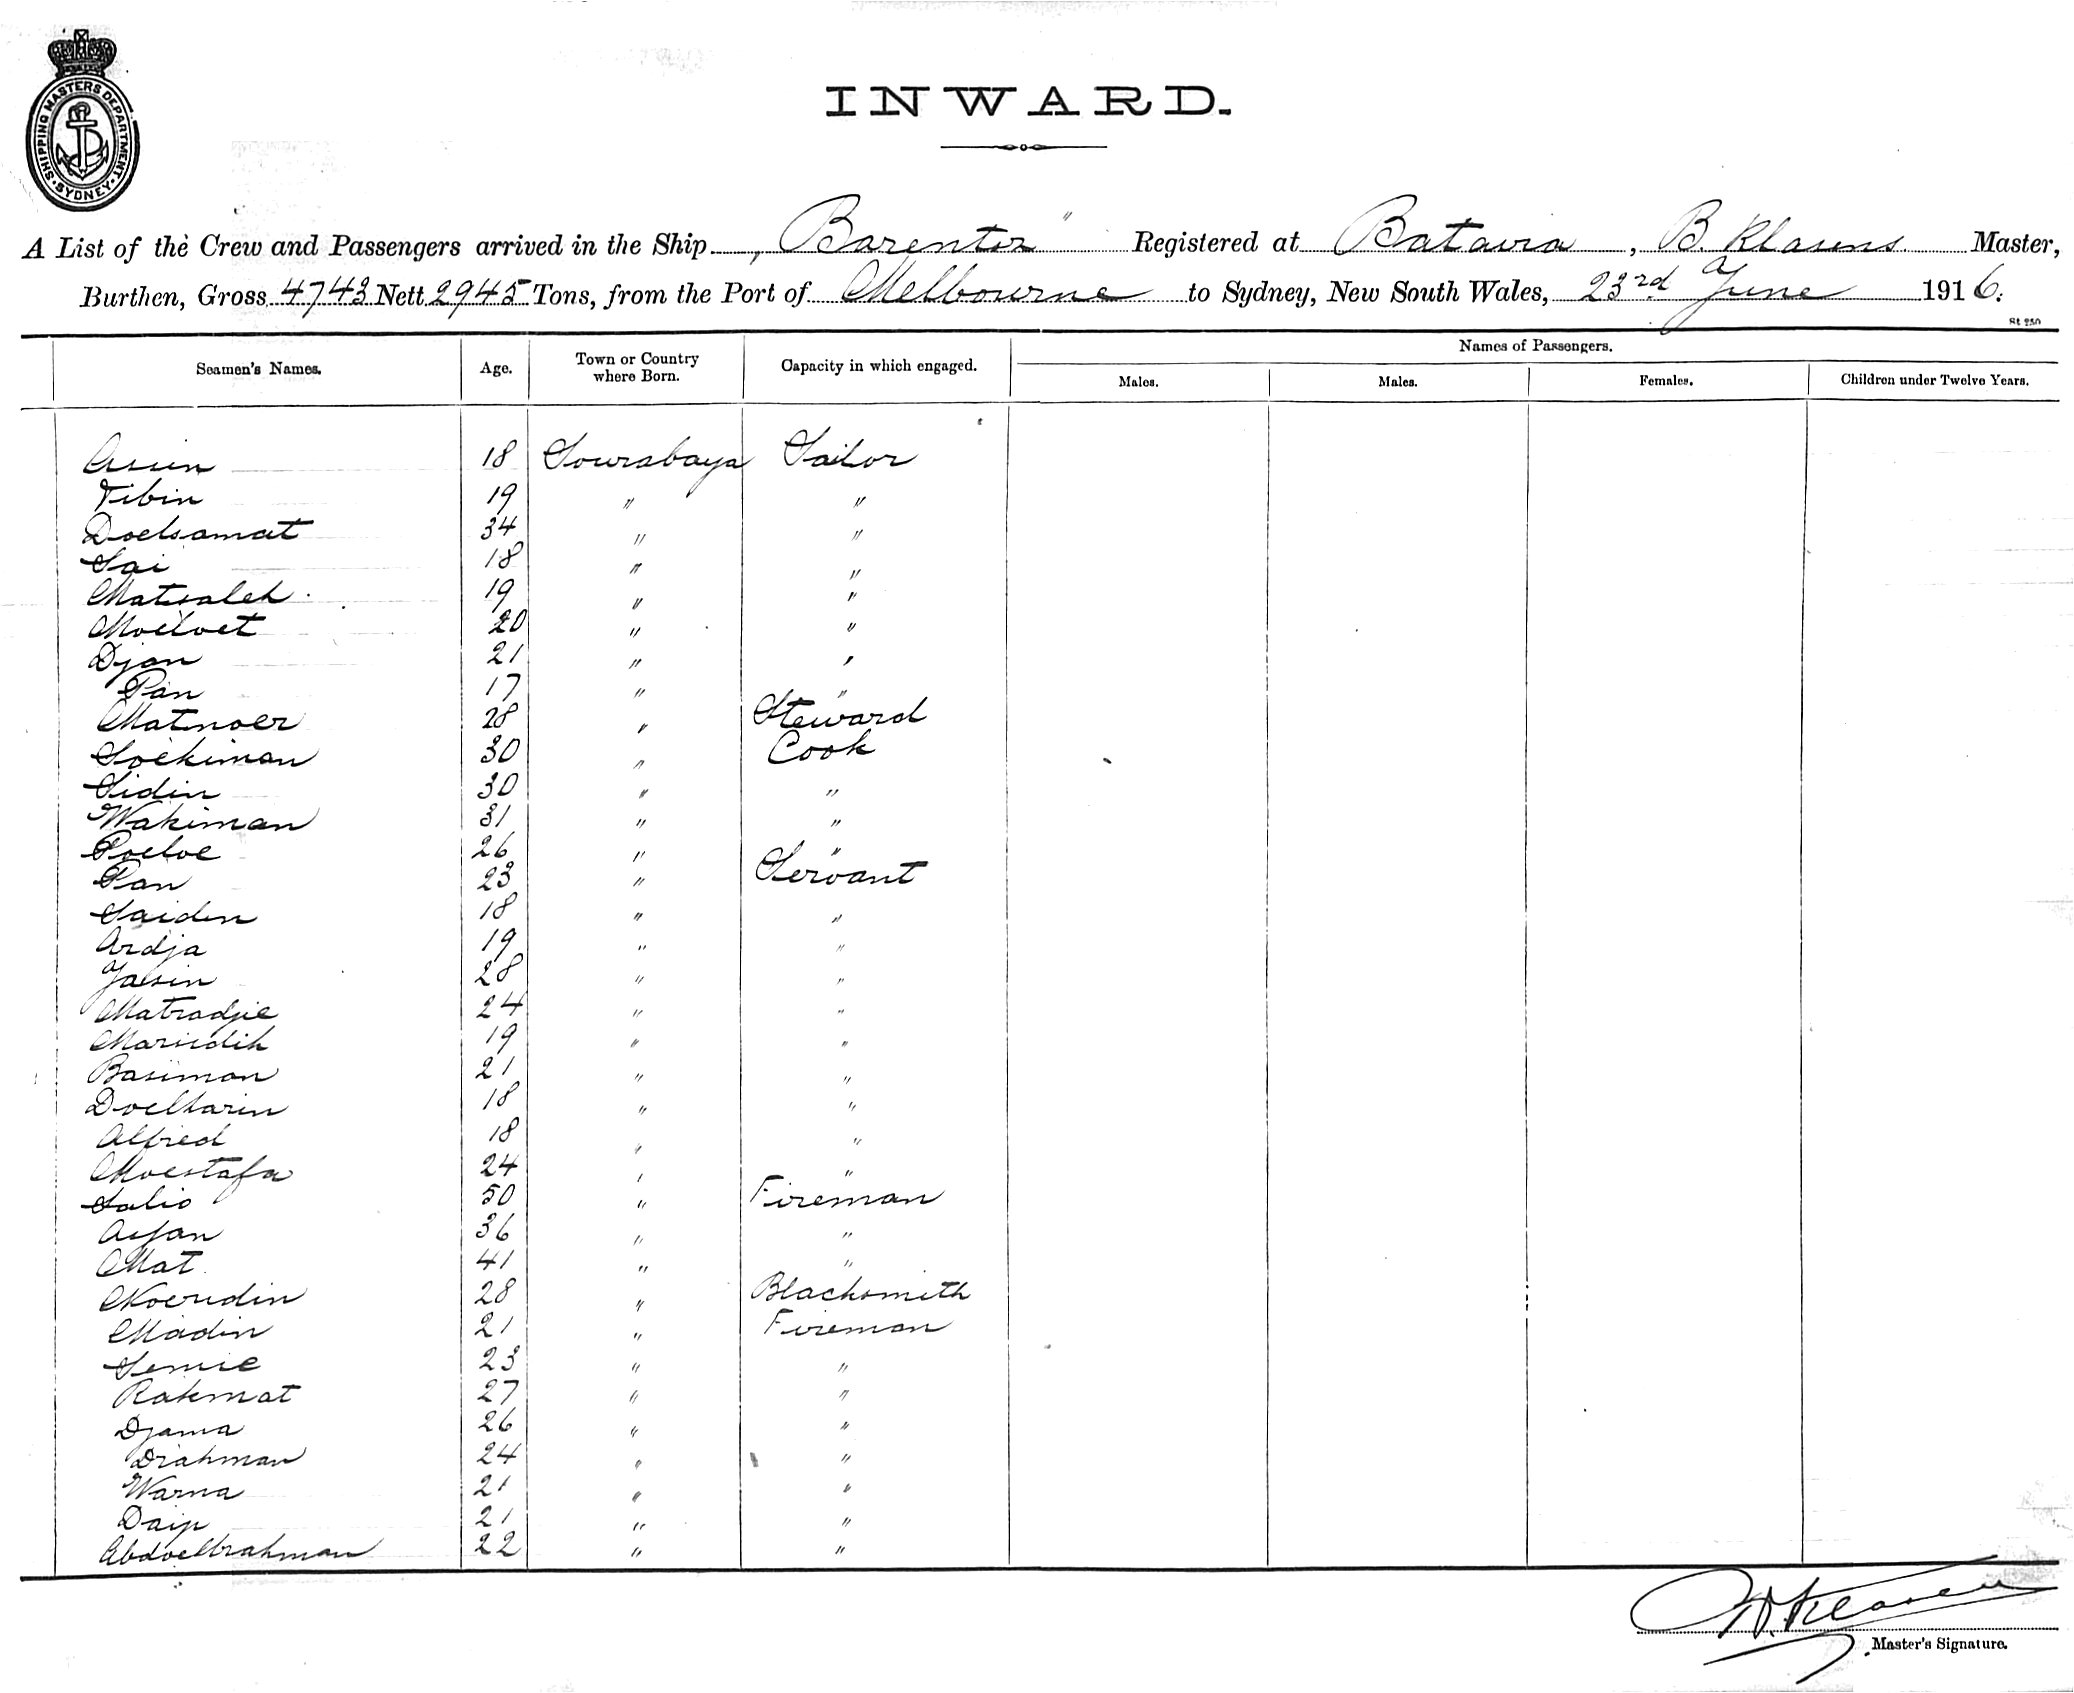 SHIPPING MASTERS DEPARTMENT
SYDNEY
INWARD.
A List of the Crew and Passengers arrived in the Ship , Barentsz " Registered at Batavia , B. Klasens Master,
Burthen, Gross 4743 Nett 2945 Tons, from the Port of Melbourne to Sydney, New South Wales, 23rd June 1916.
St 250
Names of Passengers.
Seamen's Names. Age. Town or Country where Born. Capacity in which engaged. Males. Males. Females. Children under Twelve Years.
Assin 18 Sourabaya Sailor
Tibin 19 " "
Doelsamat 34 " "
Sai 18 " "
Matsaleh 19 " "
Moeloet 20 " "
Djan 21 " "
Pan 17 " "
Matnoer 28 " Steward
Soekiman 30 " Cook
Sidin 30 " "
Wakiman 31 " "
Poeloe 26 " "
Pan 23 " Servant
Saiden 18 " "
Ardja 19 " "
Jassin 28 " "
Matradjie 24 " "
Marsidih 19 " "
Basiman 21 " "
Doelkarin 18 " "
Alfred 18 " "
Moestafa 24 " "
Salio 50 " Fireman
Asfan 36 " "
Mat 41 " "
Noerudin 28 " Blacksmith
Madin 21 " Fireman
Semie 23 " "
Rakmat 27 " "
Djama 26 " "
Drahman 24 " "
Warna 21 " "
Daip 21 " "
Abdoelbrahman 22 " "
Master's Signature.